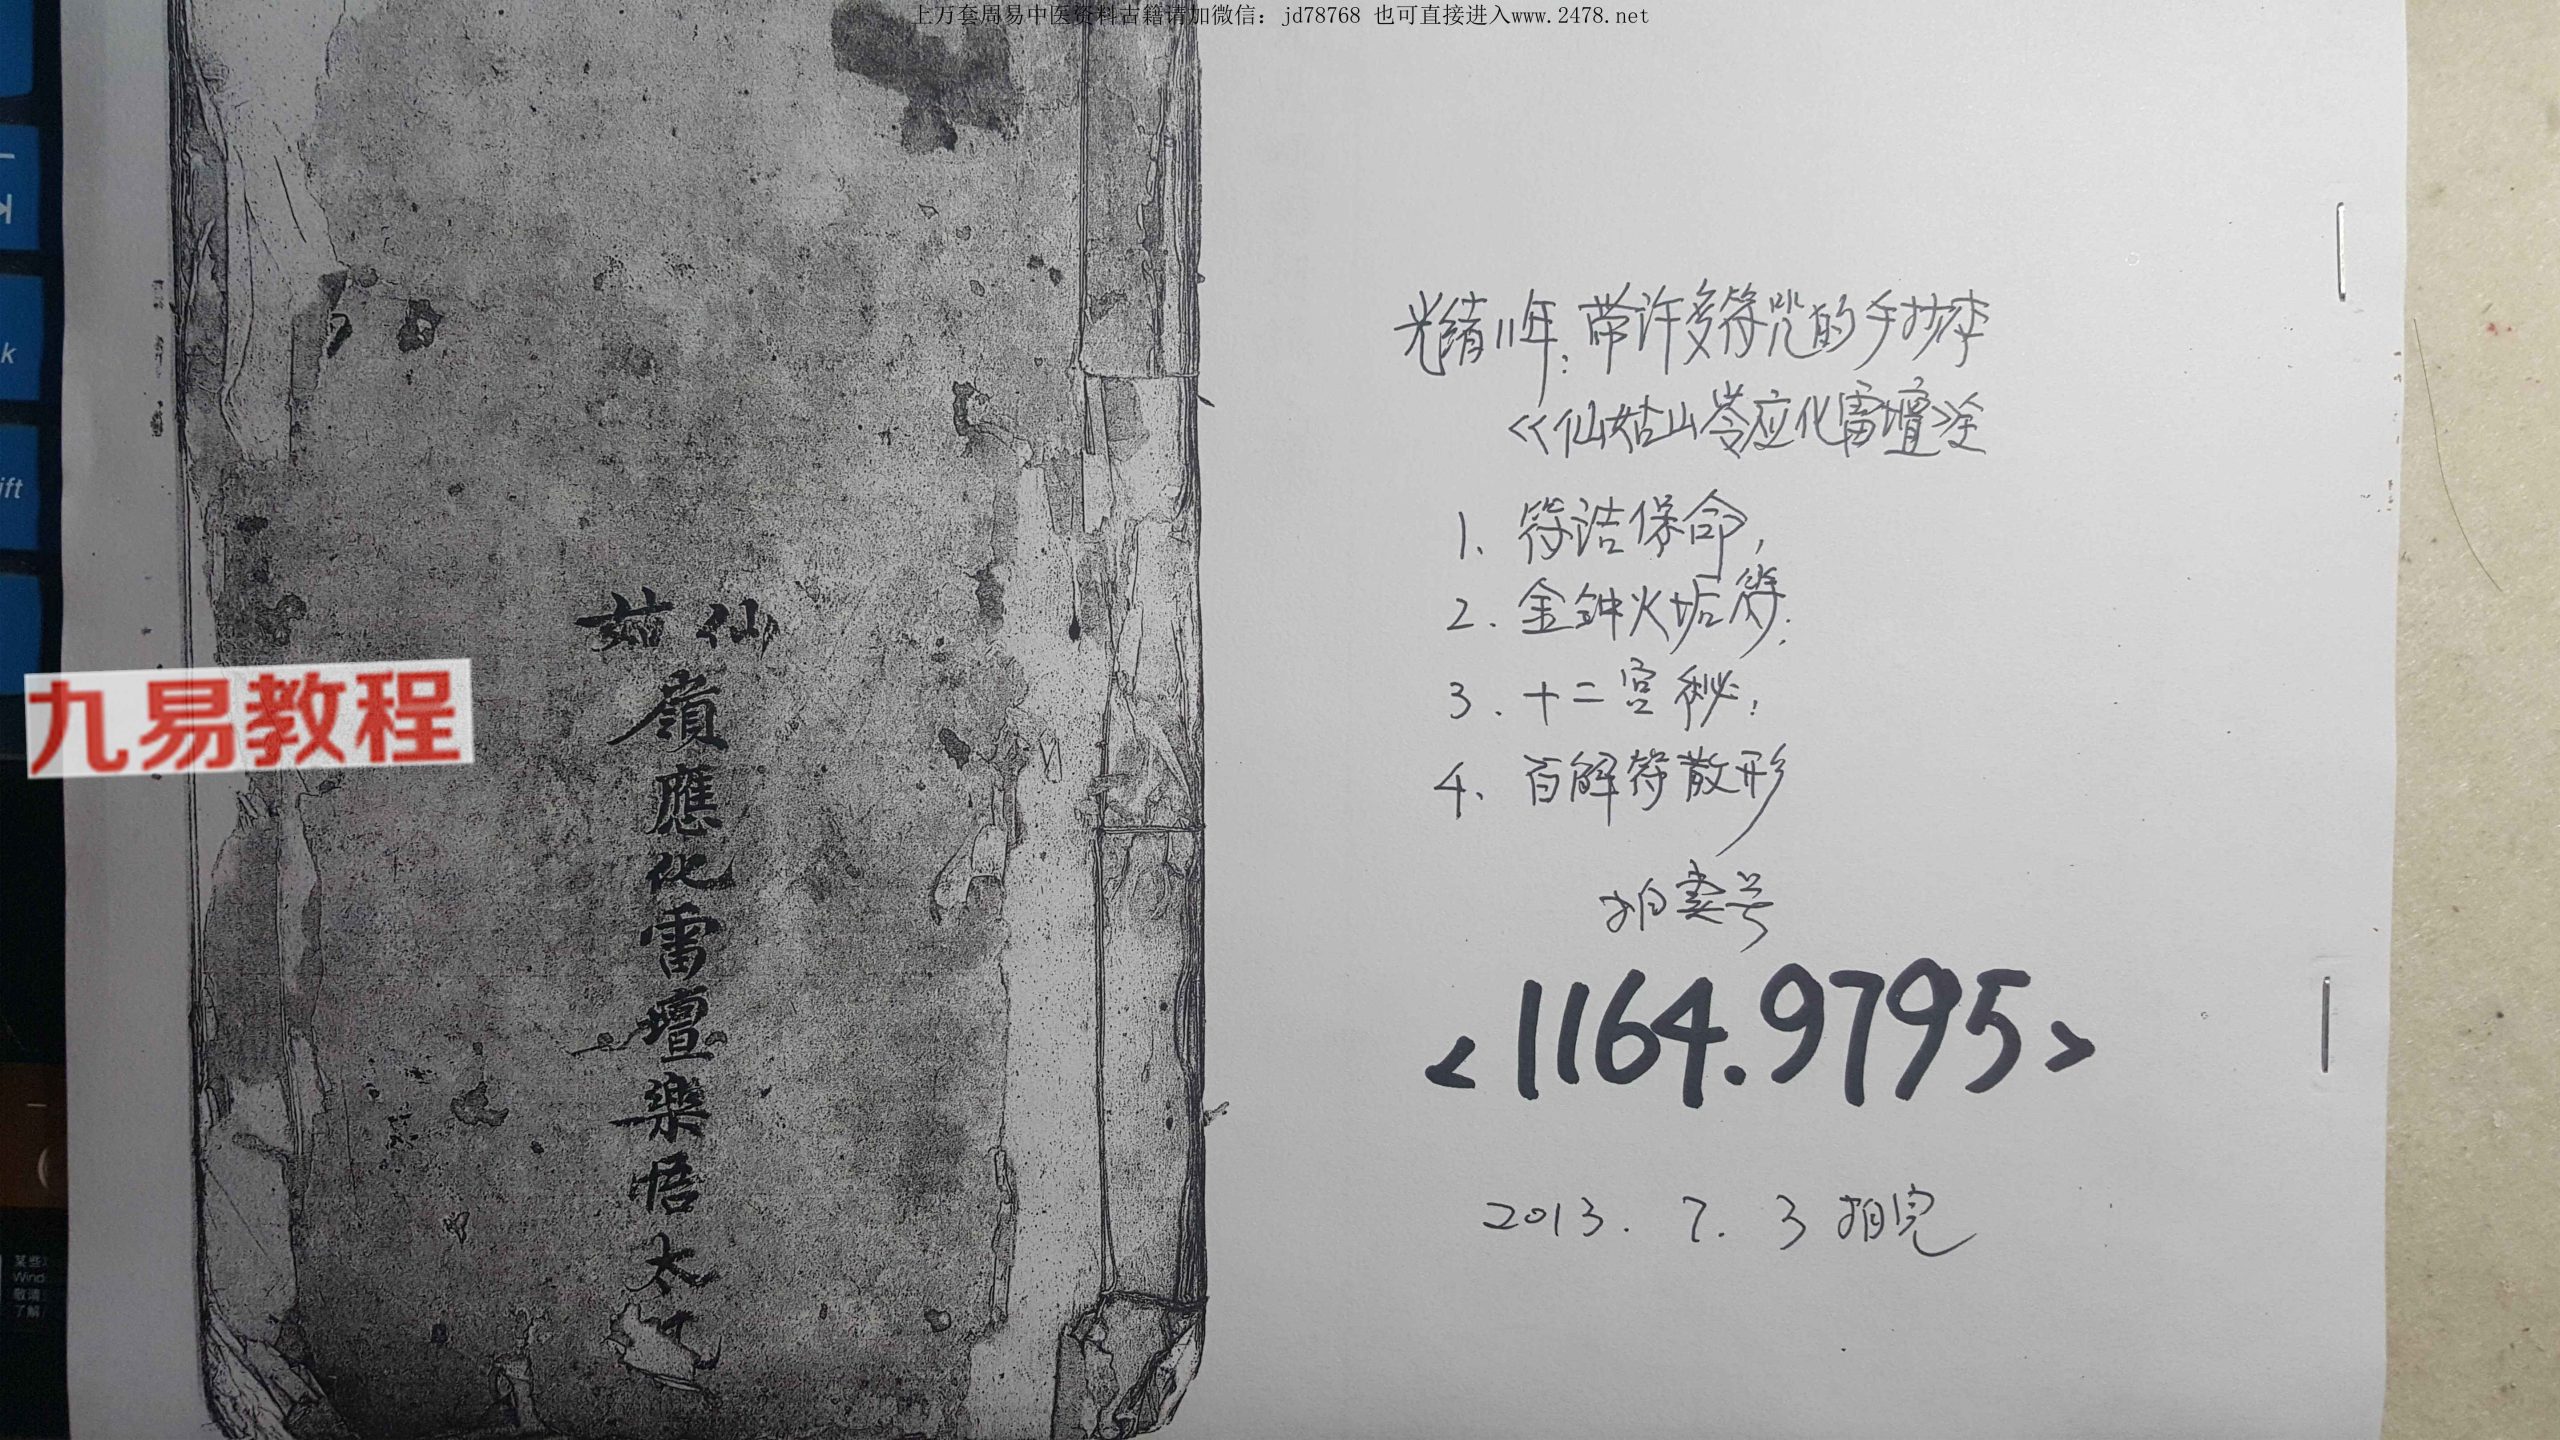 上万套周易中医资料古籍请加微信：jd78768 也可直接进入www.2478.net
仙茹
嶺應化雷壇樂悟太
九易教程
光绪11年：带许多符咒的手抄本
<<仙姑山岺应化雷壇>>全
1、符诰保命，
2．金钟火垢符；
3．十二宫秘；
4、百解符散形
拍卖号
<1164.9795>
2013．7．3拍完
k
ift
Wind
敬请
了解